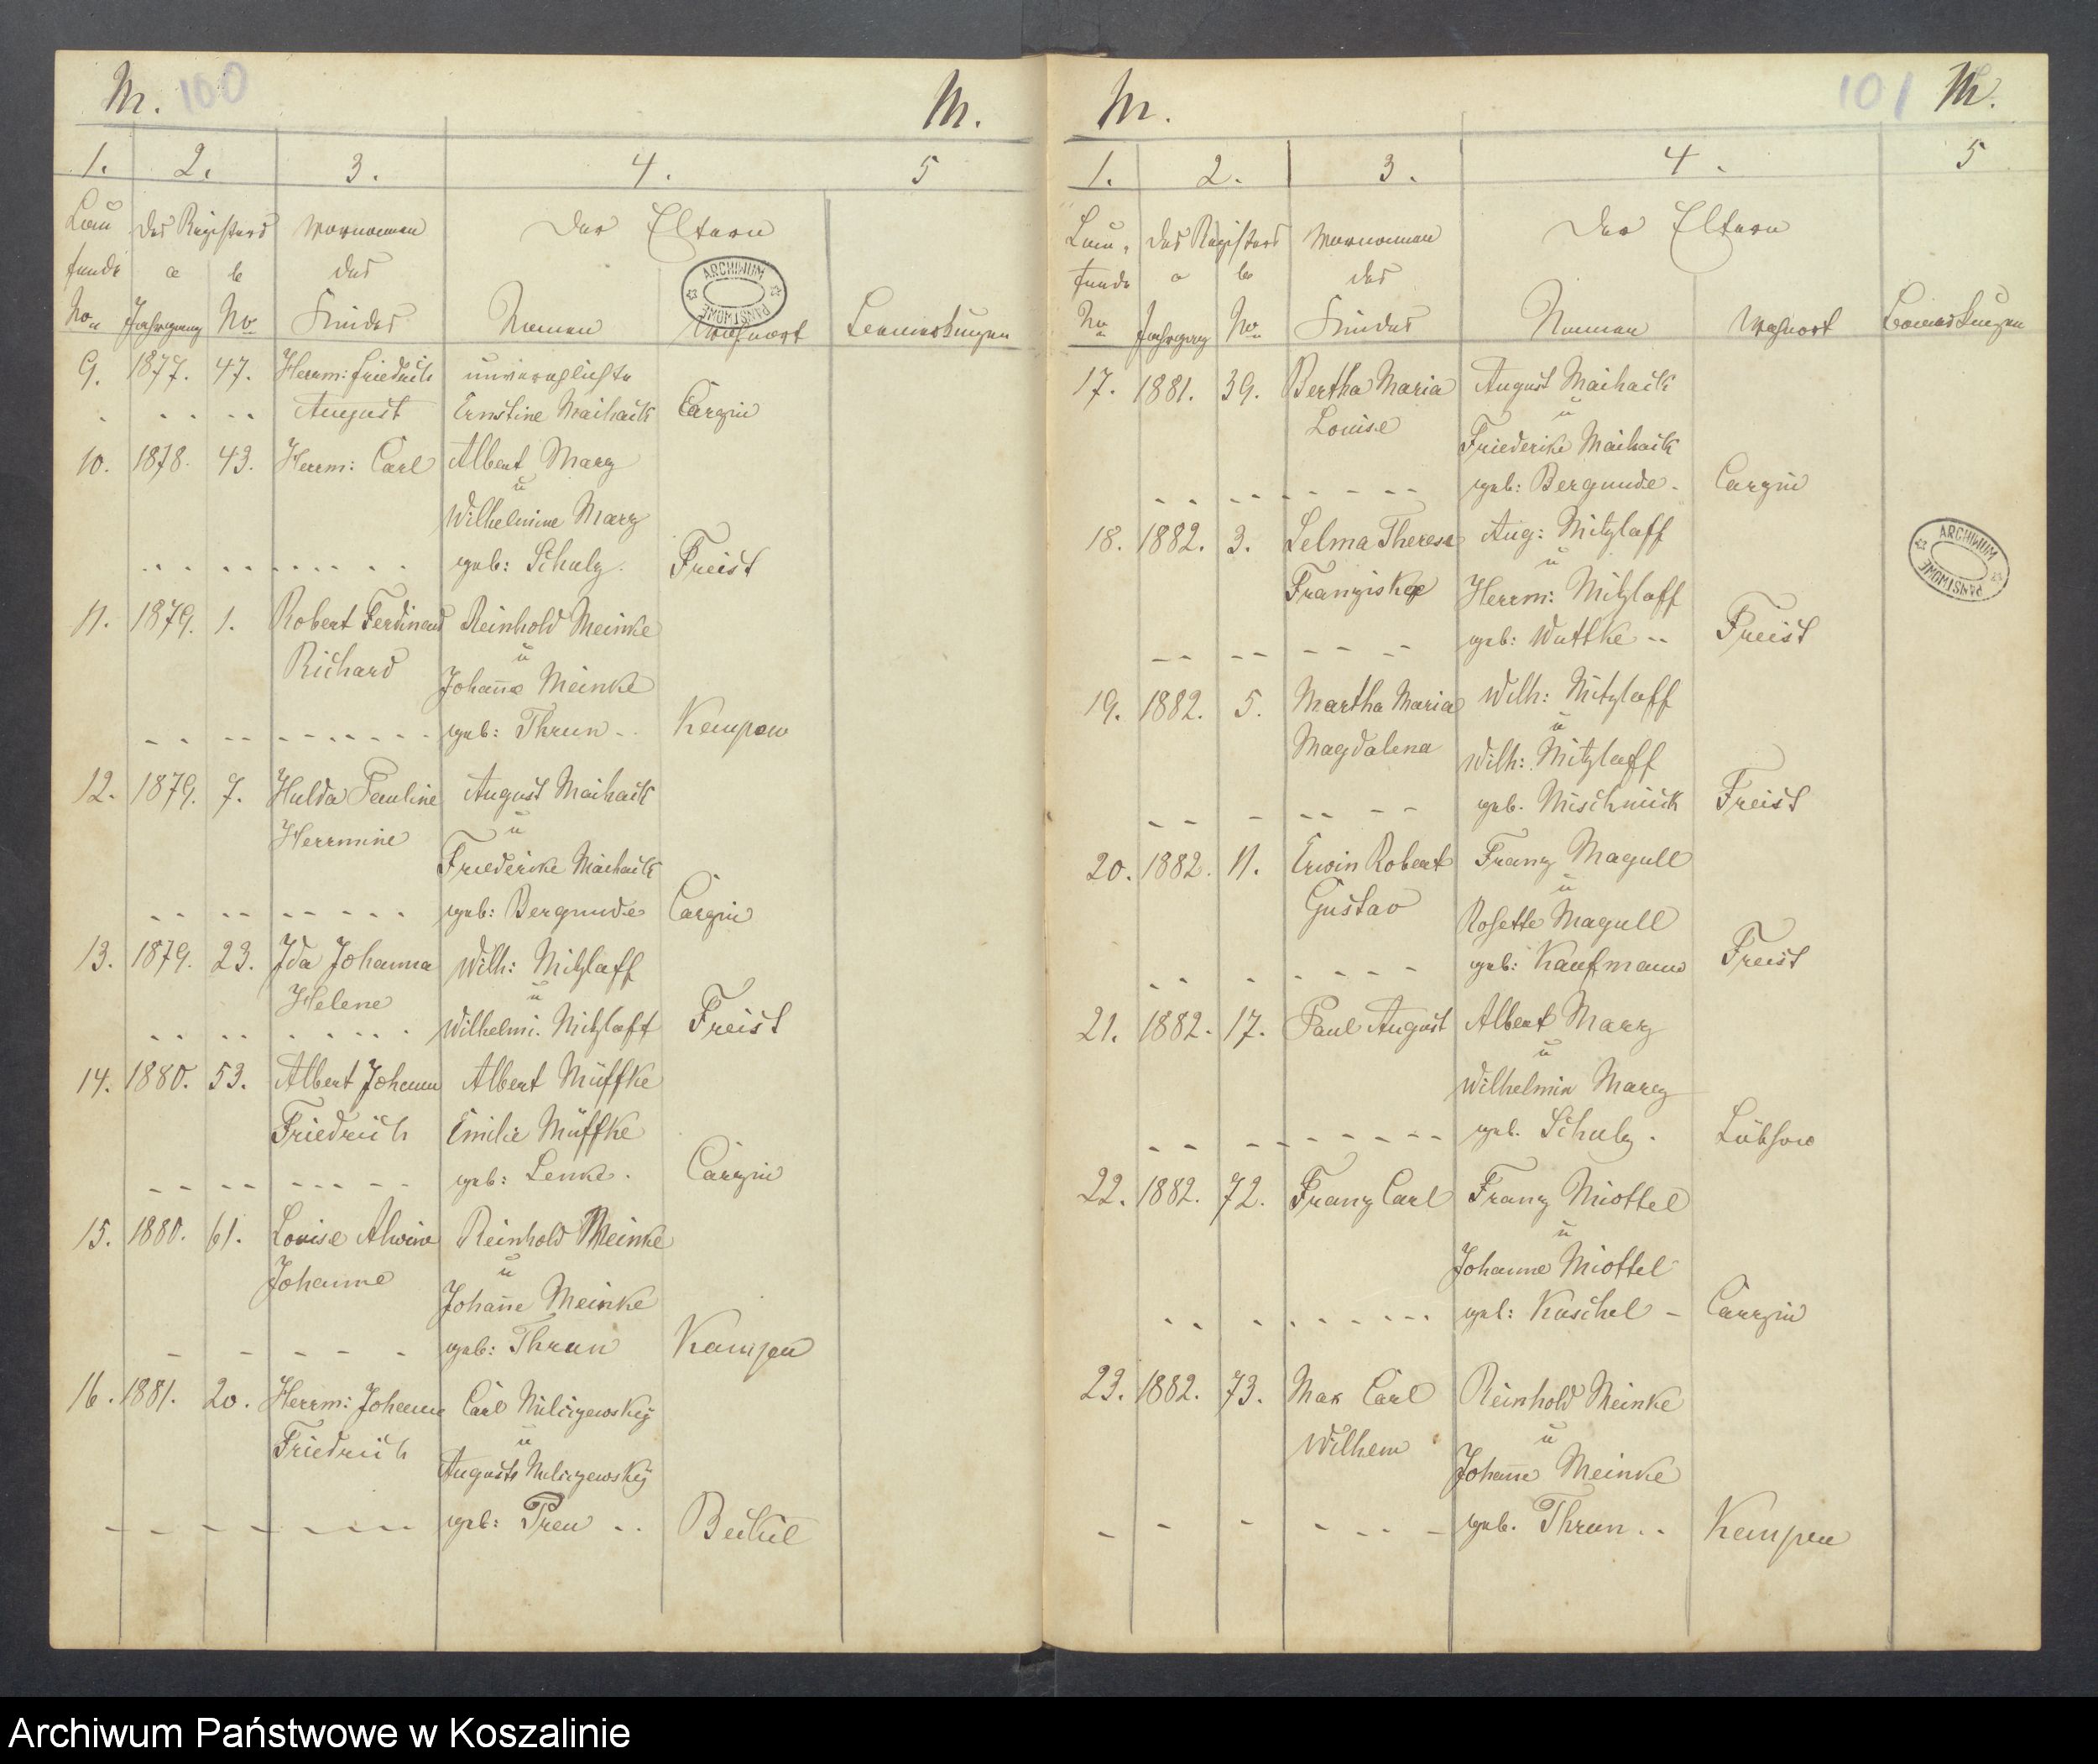 M. 100 M.
1. 2. 3. 4. 5
Lau des Registers Vornamen Der Eltern
fende a b des
No. Jahrgang No Kindes Namen Wohnort Bemerkungen
ARCHIWUM PAŃSTWOWE
9. 1877. 47. Herrm: Friedrich unverehelichte
August Ernstine Maihack Carzin
10. 1878. 43. Herrm: Carl Albert Marz
u
Wilhelmine Marz
geb: Schulz. Freist
11. 1879. 1. Robert Ferdinand Reinhold Meinke
Richard u
Johan̄e Meinke
geb: Thrun Kempen
12. 1879. 7. Hulda Pauline August Maihack
Herrmine u
Friederike Maihack
geb: Bergunde Carzin
13. 1879. 23. Ida Johanna Wilh: Mitzlaff
Helene u
Wilhelmi. Mitzlaff Freist
14. 1880. 53. Albert Johann Albert Müffke
Friedrich Emilie Müffke
geb: Lenke. Carzin
15. 1880. 61. Louise Alwine Reinhold Meinke
Johanne u
Johan̄e Meinke
geb: Thrun Kempen
16. 1881. 20. Herrm: Johann Carl
Friedrich u
Auguste
geb:
M. 101 M.
1. 2. 3. 4. 5
Lau, des Registers Vornamen Der Eltern
fende a b des
No Jahrgang No. Kindes Namen Wohnort Bemerkungen
17. 1881. 39. Bertha Maria August Maihack
Louise u
Friederike Maihack
geb: Bergunde. Carzin
18. 1882. 3. Selma Therese Aug: Mitzlaff
u
Franziska Herrm: Mitzlaff
geb: Wuttke Freist
ARCHIWUM PAŃSTWOWE
19. 1882. 5. Martha Maria Wilh: Mitzlaff
Magdalena u
Wilh: Mitzlaff
geb. Mischnick Freist
20. 1882. 11. Erwin Robert Franz Magull
Gustav u
Rosette Magull
geb: Kaufmann Freist
21. 1882. 17. Paul August Albert Marz
u
Wilhelmin Marz
geb. Schulz. Lübsow
22. 1882. 72. Franz Carl Franz Miottel
u
Johanne Miottel
geb: Kuschel Carzin
23. 1882. 73. Max Carl Reinhold Meinke
Wilhem u
Johan̄e Meinke
geb. Thrun Kempen
Archiwum Państwowe w Koszalinie